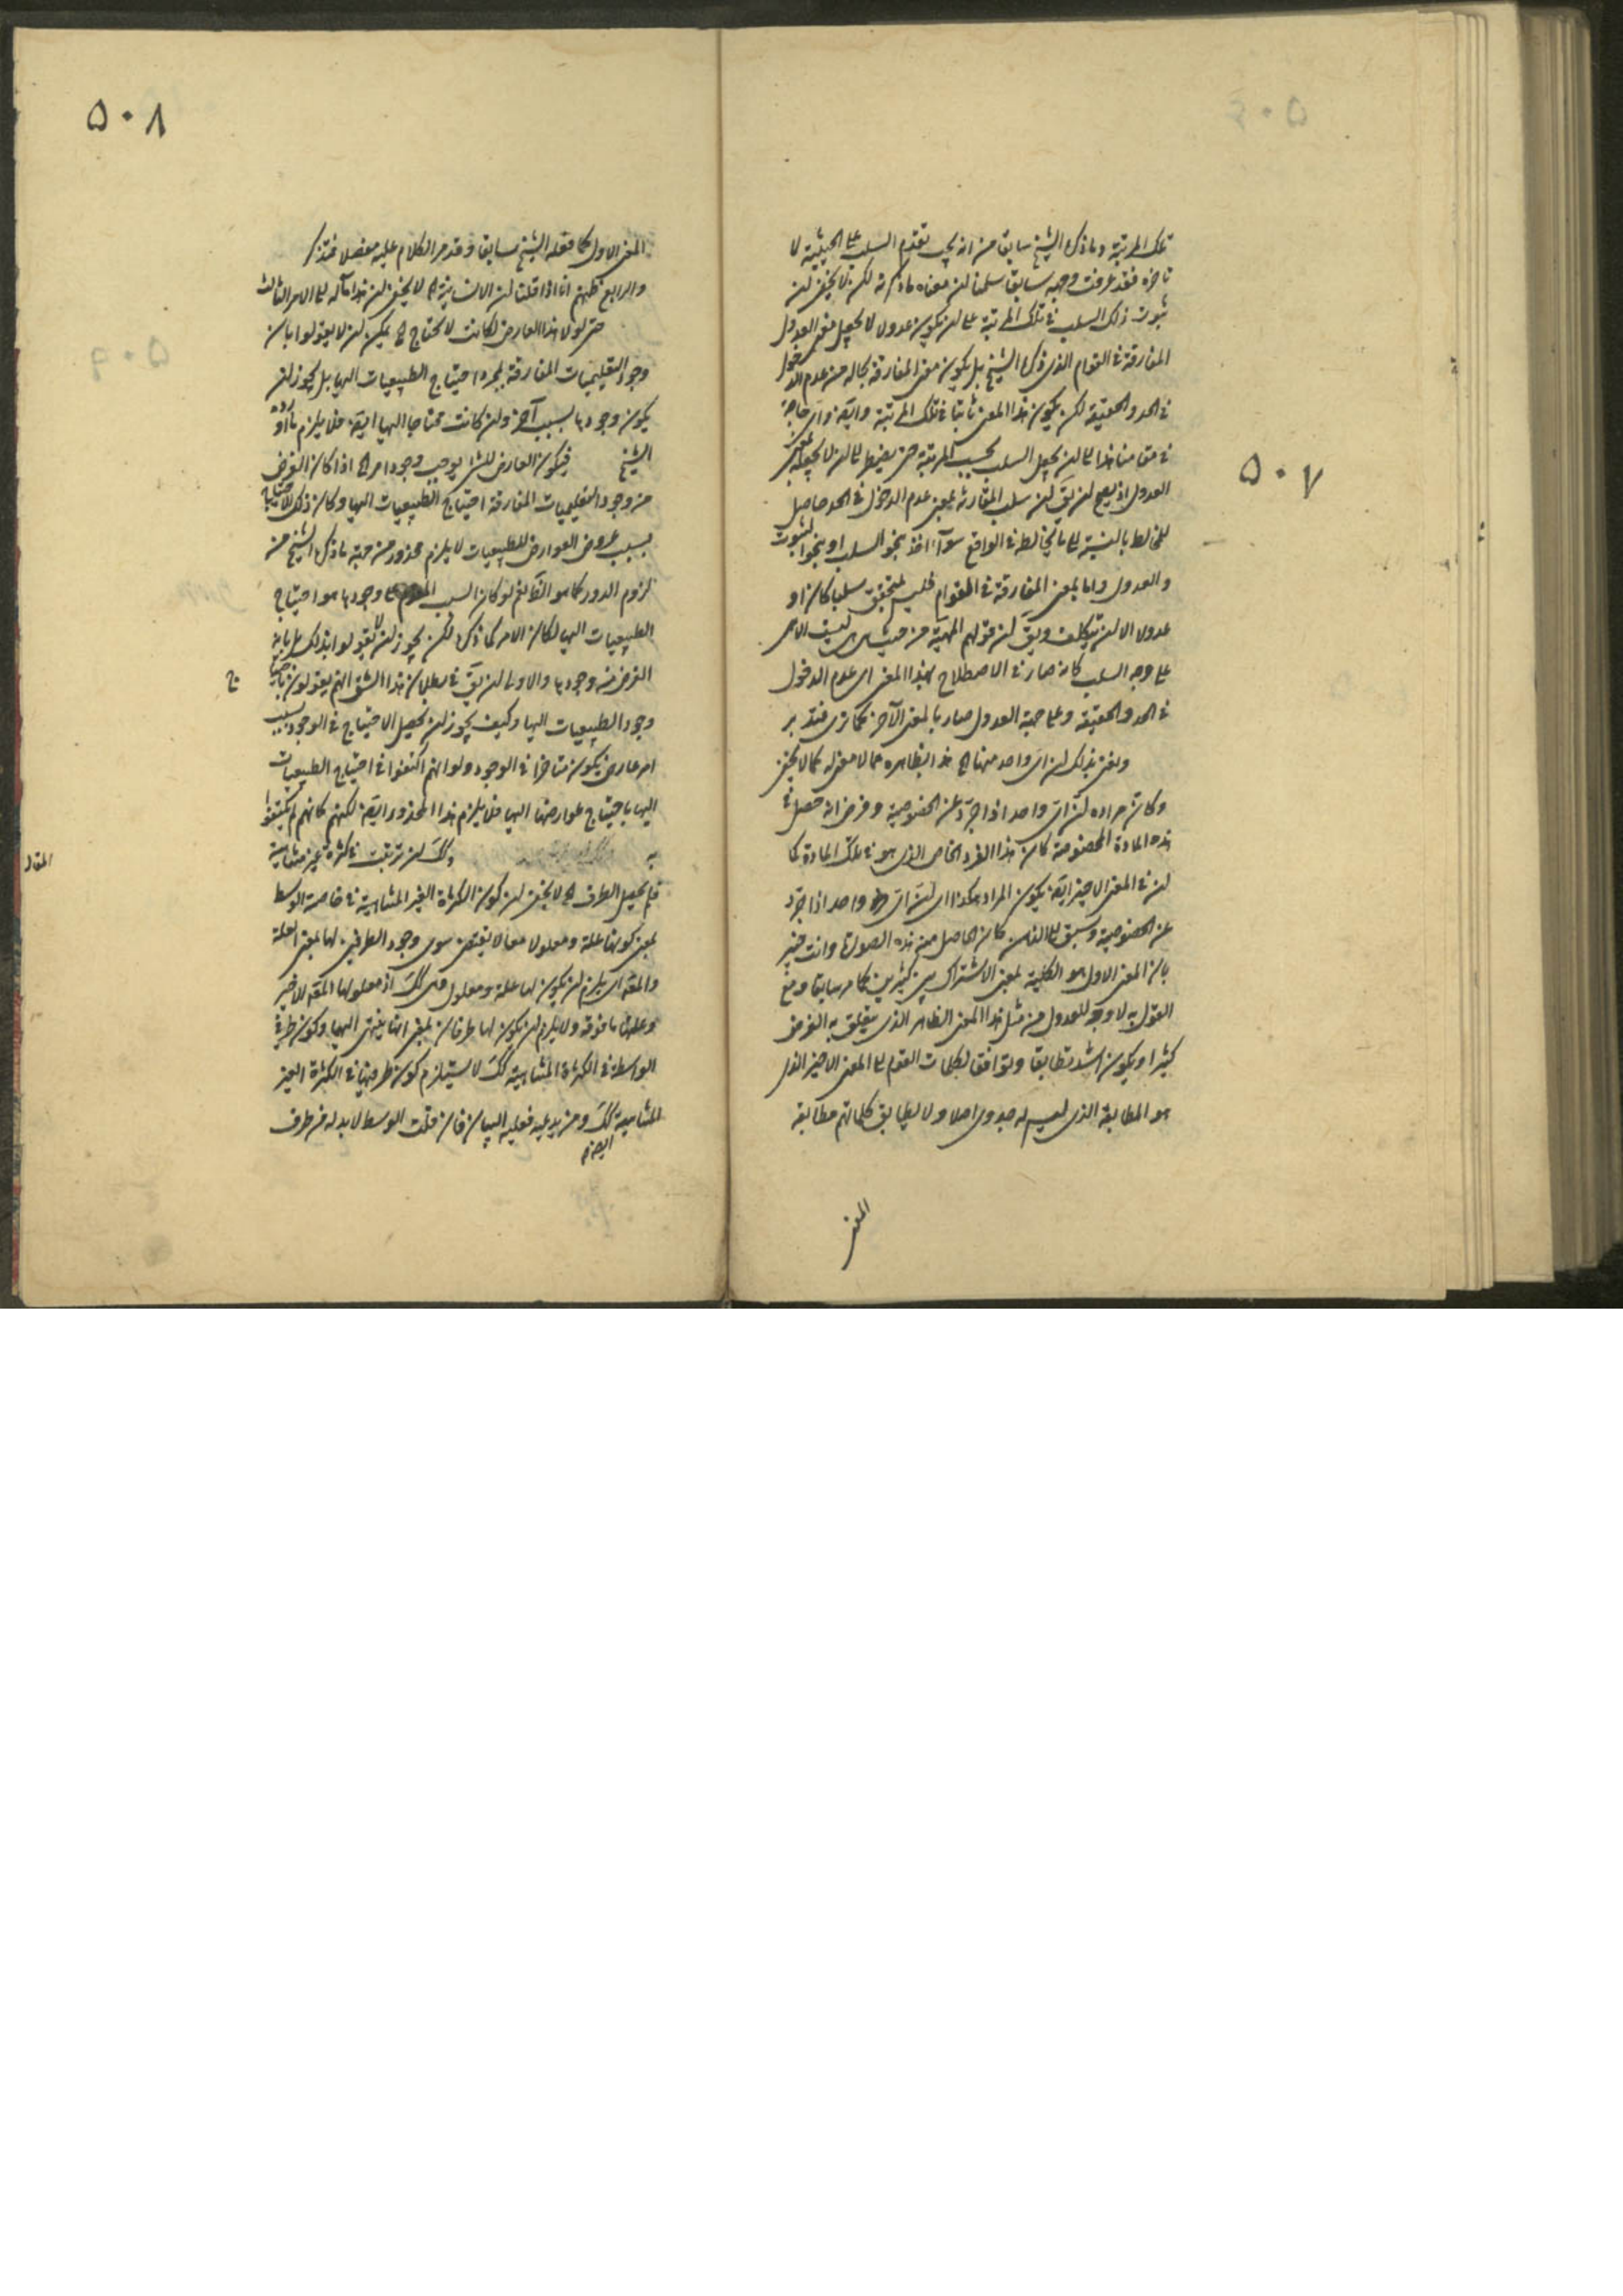 ۵۰۷
تلك المرتبة وما ذكره الشيخ سابقا من انه يجب تقدم السلب على الحيثية لا
تاخره فقد عرفت وجهه سابقا سلمنا لن معناه ما ذكرته لكن لا يخفى لن
ثبوت ذلك السلب فى تلك المرتبة على لن يكون عدولا لا يجعل معنى العدول
المفارقة فى القوام الذى ذكره الشيخ بل يكون معنى المفارقة بحاله من عدم الدخول
فى الحد والحقيقة لكن يكون هذا المعنى ثابتا فى تلك المرتبة وايضا واى حاجة
فى مقامنا هذا الى لن يجعل السلب بحسب المرتبة حتى يضطر الى لن لا يجعله بمعنى
العدول اذ يصح لن يق لن سلب المقارنة بمعنى عدم الدخول فى الحد حاصل
للمخالط بالنسبة الى ما يخالطه فى الواقع سواء اخذ بنحو السلب او بنحو الثبوت
والعدول واما بمعنى المفارقة فى القوام فليس بمتحقق سلبا كان او
عدولا الا لن يتكلف ويق لن قولهم المهية من حيث هى ليست الا هى
على وجه السلب كانه صار فى الاصطلاح بهذا المعنى اى عدم الدخول
فى الحد والحقيقة وعلى جهة العدول صار بالمعنى الآخر كما ترى فتدبر
ونعنى بذلك لن اى واحد منها الخ هذا بظاهره مما لا معنى له كما لا يخفى
وكان مراده لن اى واحد اذا جرد عن الخصوصية وفرض انه حصل فى
هذه المادة المخصوصة كان هذا الفرد الخاص الذى هو فى تلك المادة كما
لن فى المعنى الاخير ايضا يكون المراد هكذا اى لن اى واحد اذا جرد
عن الخصوصية وسبق الى الذهن كان الحاصل منه هذه الصورة وانت خبير
بان المعنى الاول هو الكلية بمعنى الاشتراك بين كثيرين كما مر سابقا ومع
القول به لا وجه للعدول من مثل هذا المعنى الظاهر الذى يتعلق به الغرض
كثيرا ويكون اشد تطابقا وتوافقا لكلمات القوم الى المعنى الاخير الذى
هو المطابقة الذى ليس له جدوى اصلا ولا يطابق كلماتهم مطابقة
المعنى
۵۰۸
المعنى الاول كما فعله الشيخ سابقا وقد مر الكلام عليه مفصلا فتذكر
والرابع ظنهم انا اذا قلنا لن الانسانية الخ لا يخفى لن هذا مآله الى الامر الثالث
حتى لولا هذا العارض لكانت لا تحتاج الخ يمكن لن لا يقولوا بان
وجود التعليميات المفارقة لمجرد احتياج الطبيعيات اليها بل يجوز لن
يكون وجودها لسبب آخر ولن كانت محتاجا اليها ايضا فلا يلزم ما اورده
الشيخ فيكون العارض للشئ يوجب وجود امر الخ اذا كان الغرض
من وجود التعليميات المفارقة احتياج الطبيعيات اليها وكان ذلك الاحتياج
بسبب عروض العوارض للطبيعيات لا يلزم محذور من جهة ما ذكره الشيخ من
لزوم الدور كما هو الظاهر نعم لو كان السبب وجودها هو احتياج
الطبيعيات اليها لكان الامر كما ذكره لكن يجوز لن لا يقولوا بذلك بل بانه
الغرض من وجودها والاولى لن يق فى بطلان هذا الشق انهم يقولون باحتياج
وجود الطبيعيات اليها وكيف يجوز لن يحصل الاحتياج فى الوجود بسبب
امر عارض يكون متاخرا فى الوجود ولو انهم اكتفوا فى احتياج الطبيعيات
اليها باحتياج عوارضها اليها فلا يلزم هذا المحذور ايضا لكنهم كانهم لم يكتفوا
به وكك لن ترتبت فى كثرة غير متناهية
فلم يحصل الطرف الخ لا يخفى لن كون الكثرة الغير المتناهية فى خاصة الوسط
بمعنى كونها علة ومعلولا معا لا يقتضى سوى وجود الطرفين لها بمعنى العلة
والمعلول اى يلزم لن يكون لها علة ومعلول وهى كك اذ معلولها المعلول الاخير
وعلتها ما فوقه ولا يلزم لن يكون لها طرفان بمعنى انها ينتهى اليهما وكون طرفى
الواسطة فى الكثرة المتناهية كك لا يستلزم كون طرفيها فى الكثرة الغير
المتناهية كك ومن يدعيه فعليه البيان فان قلت الوسط لا بد له من طرف
ايضا